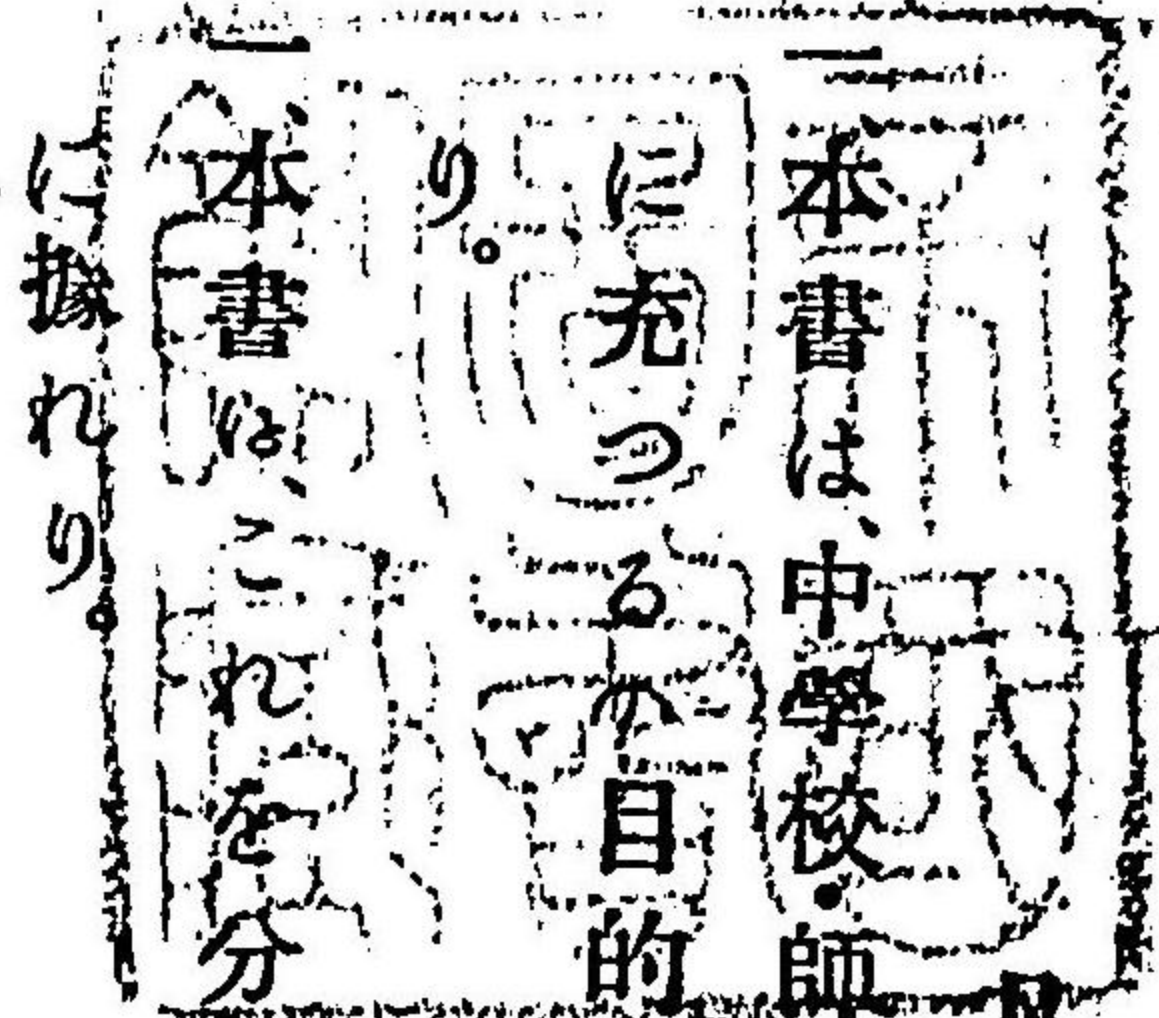 一、本書は、中學校・師
に充つるの目的
り。
一、本書は、これを分
に據れり。